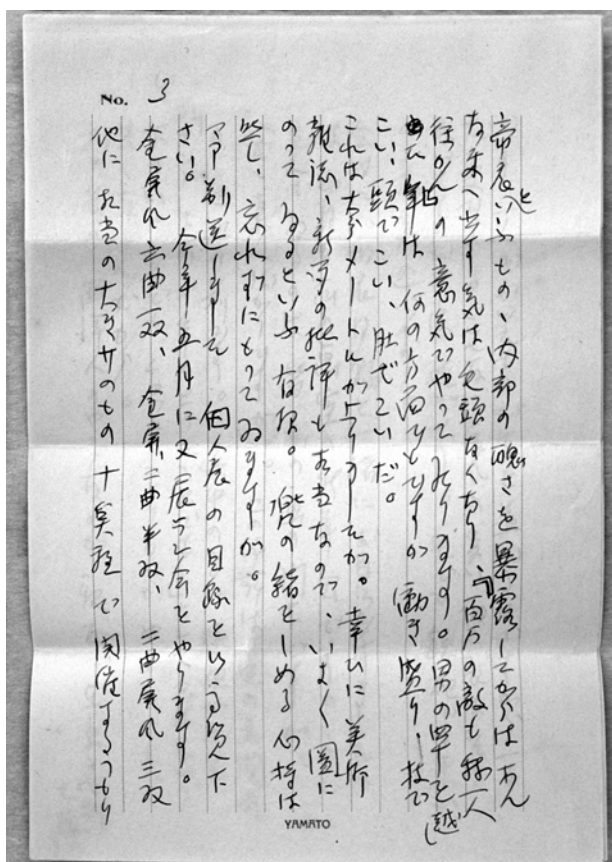 No. 3
帝展といふもの、内部の醜さを暴露してからはあん
な所へ出す気は毛頭なくなり、「百万の敵も我一人
往かん」の意気でやって居ります。男の四十を越
した年は何の方面ひとですか働き盛り、技で
こい、頭でこい、肚でこいだ。
これは大分メートルが上りましたか。幸ひに美術
雑誌、新聞の批評も相当なので、いよく図に
のって ゐるといふ有様。兜の緒をしめる心持は
堅く、忘れずにもって ゐますが。
別送しました個人展の目録といふ御覧下
さい。 今年五月に又展らん会をやります。
金屏風六曲一双、金屏二曲半双、二曲屏風三双
他に相当の大きサのもの十点程で開催するつもり
YAMATO